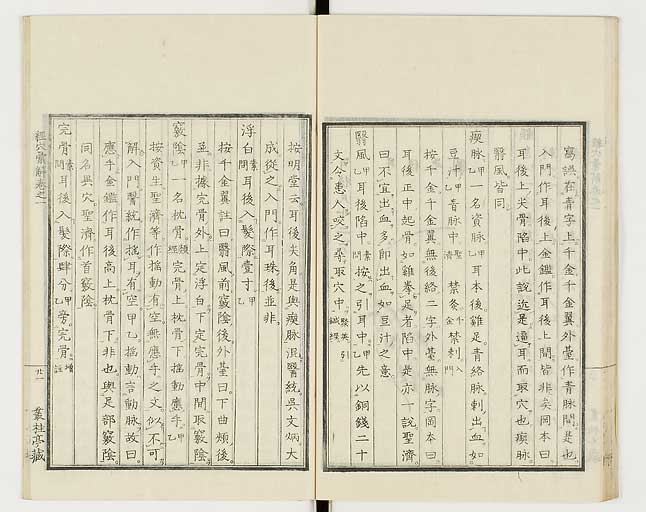 寫誤在青字上千金千金翼外臺作青脉間是也
入門作耳後上金鑑作耳後上間皆非矣岡本曰
耳後上尖骨陷中此說近是違耳而取穴也瘈脉
翳風皆同
瘈脉甲乙一名資脉甲乙耳本後雞足青絡脉刺出血如
豆汁甲乙青脉中聖濟禁灸千金禁刺入門
按千金千金翼無後絡二字外臺無脉字岡本曰
耳後正中起骨如雞拳足者陷中是亦一說聖濟
曰不宜出血多即出血如豆汁之意
翳風甲乙耳後陷中素問按之引耳中甲乙先以銅錢二十
文令患人咬之尋取穴中聚英引鍼經
按明堂云耳後尖角是與瘈脉混醫統吳文炳大
成從之入門作耳珠後並非
浮白素問耳後入髮際壹寸甲乙
按千金翼註曰翳風前竅陰後外臺曰下曲頰後
並非據完骨外上定浮白下定完骨中間取竅陰
竅陰甲乙一名枕骨類經完骨上枕骨下搖動應手甲乙
按資生聖濟等作搖動有空無應手之文似不可
解入門醫統作搖耳有空甲乙搖動言動脉故曰
應手金鑑作耳後高上枕骨下非也與足部竅陰
同名異穴聖濟作首竅陰
完骨素問耳後入髮際肆分甲乙旁完骨
經穴彙解卷之一
廿一
叢桂亭藏